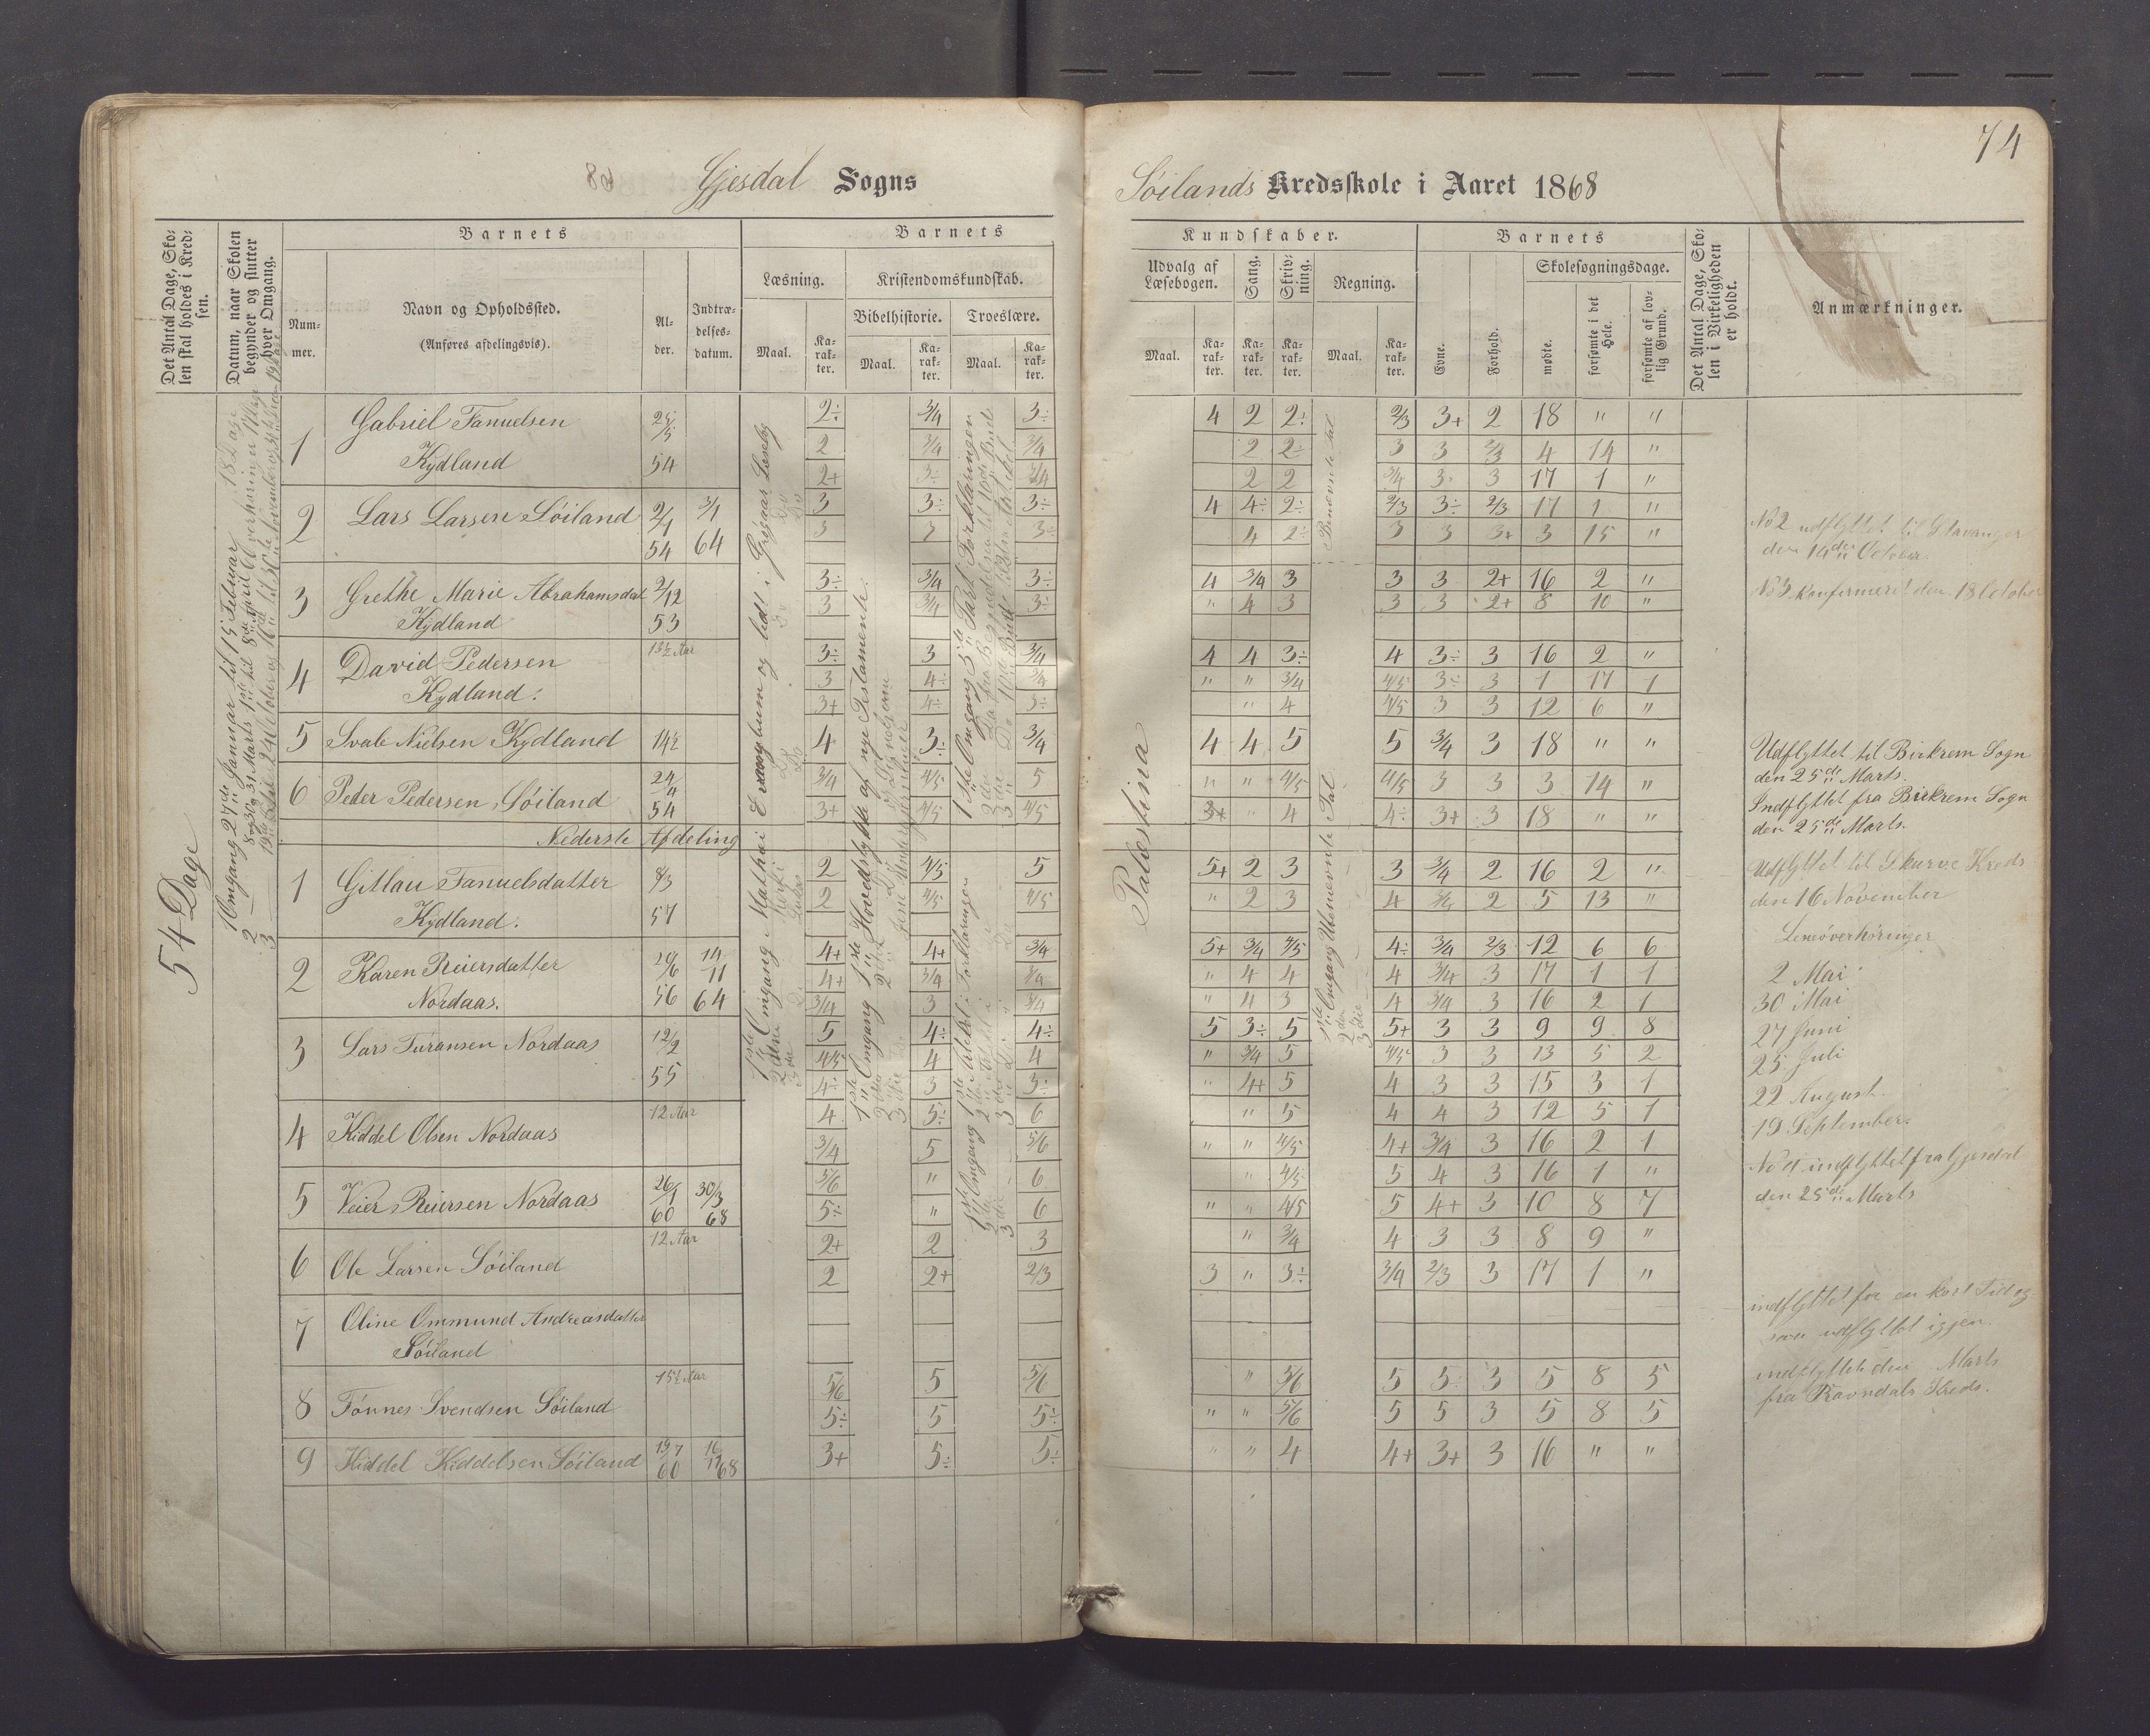 74
Gjesdal Sogns
Søilands Kredsskole i Aaret 1868
Det Antal Dage, Sko-
len skal holdes i Kred-
sen.
Datum, naar Skolen
begynder og slutter
hver Omgang.
Barnets
Num-
mer.
Navn og Opholdssted.
(Anføres afdelingsvis).
Al-
der.
Indtræ-
delses-
datum.
Barnets
Læsning.
Maal.
Ka-
rak-
ter.
Kristendomskundskab.
Bibelhistorie.
Maal.
Ka-
rak-
ter.
Troeslære.
Maal.
Ka-
rak-
ter.
Kundskaber.
Udvalg af
Læsebogen.
Maal.
Ka-
rak-
ter.
Sang.
Ka-
rak-
ter.
Skriv-
ning.
Ka-
rak-
ter.
Regning.
Maal.
Ka-
rak-
ter.
Barnets
Evne.
Forhold.
Skolesøgningsdage.
mødte.
forsømte i det
Hele.
forsømte af lov-
lig Grund.
Det Antal Dage, Sko-
len i Virkeligheden
er holdt.
Anmærkninger.
54 Dage
1 Omgang 27de Januar til 15 Februar
1 Gabriel Fanuelsen 25/5
Kydland 54
2÷ 3/4 3÷ 4 2 2÷ 2/3 3+ 2 18 " "
2 3/4 3/4 2 2÷ 3 3 2/3 4 14 "
2+ 3÷ 3/4 2 2 3/4 3 3 17 1 "
2 Lars Larsen Søiland 2/1 54 3/1 64
3 3÷ 3÷ 4 4÷ 2÷ 2/3 3÷ 2/3 17 1 "
3 3 3÷ 4 2÷ 3 3 3+ 3 15 "
No 2 udflyttet til Stavanger
den 14de October.
3 Grethe Marie Abrahamsdat 2/12
Kydland 53
3÷ 3/4 3÷ 4 3/4 3 3 3 2+ 16 2 "
3 3/4 3÷ " 4 3 3 3 2+ 8 10 "
No 3 konfirmeret den 18 October
4 David Pedersen 13½ Aar
Kydland.
3÷ 3 3/4 4 4 3÷ 4 3÷ 3 16 2 "
3 4÷ 3/4 " " 3/4 4/5 3÷ 3 1 17 1
3+ 4÷ 3÷ " 4 4/5 3 3 12 6 "
5 Svale Nielsen Kydland 14½
4 3÷ 3/4 4 4 5 5 3/4 3 18 " "
Udflyttet til Birkrem Sogn
den 25de Marts.
6 Peder Pedersen Søiland 24/4 54
3/4 4/5 5 " " 4/5 4/5 3 3 3 14 "
3+ 4/5 4/5 3+ " 4 4÷ 3+ 3 18 " "
Indflyttet fra Birkrem Sogn
den 25de Marts.
Nederste Afdeling
1 Gitlau Fanuelsdatter 8/3
Kydland. 57
2 4/5 5 5+ 2 3 3 3/4 2 16 2 "
2 4/5 4/5 " 2 3 4 3/4 2 5 13 "
Udflyttet til Skurve Kreds
den 16 November
2 Karen Reiersdatter 20/6 14/11
Nordaas. 56 64
4+ 4+ 3/4 5+ 3/4 4/5 4÷ 3/4 2/3 12 6 6
4+ 3/4 3/4 " 4 4 4 3/4 3 17 1 1
3/4 3 3/4 " 4 3 4 3/4 3 16 2 1
Læseøverhøringer
2 Mai
30 Mai
27 Juni
25 Juli
22 August.
19 September.
3 Lars Turansen Nordaas 12/2 55
5 4÷ 4÷ 5 3÷ 5 5+ 3 3 9 9 8
4/5 4 4 " 3/4 5 4/5 3 3 13 5 2
4÷ 3 3÷ " 4+ 5 4 3 3 15 3 1
4 Kiddel Olsen Nordaas 12 Aar
4 5÷ 6 " 5 4 4 3 12 5 1
3/4 5 5/6 " " 4/5 4+ 3/4 3 16 2 1
No 4 indflyttet fra Gjesdal
den 25de Marts
5 Veier Reiersen Nordaas 26/1 60 30/3 68
5/6 " 6 " 4/5 5 4 3 16 1 "
5÷ " 6 " " 4/5 5 4+ 3 10 8 7
6 Ole Larsen Søiland 12 Aar
2+ 2 3 " 3/4 4 3 3 8 9 "
2 2+ 2/3 3 " 3÷ 3/4 2/3 3 17 1 "
7 Oline Ommund Andreasdatter
Søiland
indflyttet for en kort Tid og
saa udflyttet igjen.
8 Tønnes Svendsen Søiland 15½ Aar
5/6 5 5/6 " 5/6 5 5÷ 3 5 8 5
5÷ 5 5÷ " " 5/6 5 5 3 5 8 5
indflyttet den Marts
fra Ravndals Kreds.
9 Kiddel Kiddelsen Søiland 19/7 60 16/11 68
3+ 5÷ 5÷ " " 4 4+ 3+ 3 16 " "
1ste Omgang Mathæi Evangelium og lidt i Grøgaar Læsebog
1ste Omgang 1ste Hovedstykke af nye Testamente.
1ste Omgang 3die Part Forklaringen
1ste Omgang 1ste Artikel i Forklaringen
Palæstina
1ste Omgang Ubenævnte Tal
Benævnte Tal